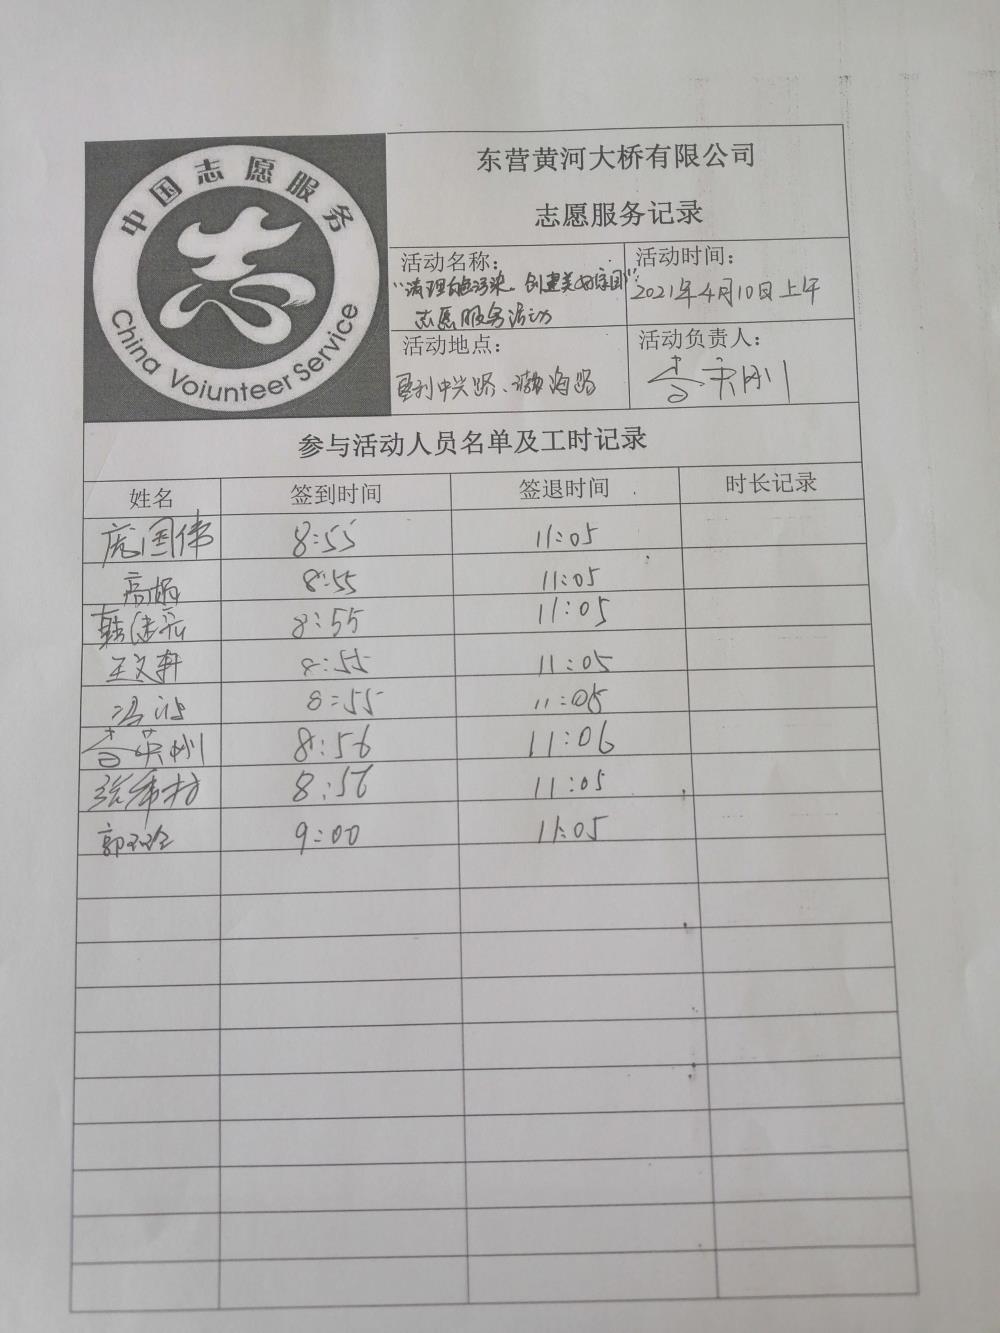 中国志愿服务
志
China Voiunteer Service
东营黄河大桥有限公司
志愿服务记录
活动名称：
“清理白色污染、创建美好家园”
志愿服务活动
活动时间：
2021年4月10日上午
活动地点：
垦利中兴路、渤海路
活动负责人：
李英刚
参与活动人员名单及工时记录
姓名 签到时间 签退时间 时长记录
庞国伟 8:55 11:05
8:55 11:05
8:55 11:05
王文轩 8:55 11:05
8:55 11:05
李英刚 8:56 11:06
8:56 11:05
9:00 11:05